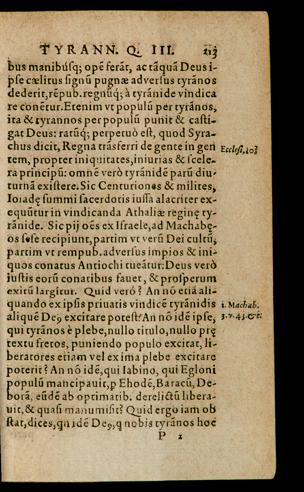 TYRANN. Q. III. 213
bus manibúsq; opē ferāt, ac tāquā Deus i-
pse cælitus signū pugnæ adversus tyrānos
dederit, rēpub. regnūq; à tyrānide vindica
re conētur. Etenim vt populū per tyrānos,
ita & tyrannos per populū punit & casti-
gat Deus: ratūq; perpetuò est, quod Syra-
chus dicit, Regna trāsferri de gente in gen
Ecclesi, 10.
tem, propter iniquitates, iniurias & scele-
ra principū: omnē verò tyrānidē parū diu-
turnā existere. Sic Centuriones & milites,
Ioiadę summi sacerdotis iussa alacriter ex-
equūtur in vindicanda Athaliæ reginę ty-
rānide. Sic pij oēs ex Israele, ad Machabę-
os sese recipiunt, partim vt verū Dei cultū,
partim vt rempub. adversus impios & ini-
quos conatus Antiochi tueātur: Deus verò
iustis eorū conatibus fauet, & prosperum
exitū largitur. Quid verò? An nō etiā ali-
quando ex ipsis priuatis vindicē tyrānidis
i. Machab.
aliquē De9 excitare potest? An nō idē ipse,
qui tyrānos è plebe, nullo titulo, nullo prę
textu fretos, puniendo populo excitat, li-
beratores etiam vel ex ima plebe excitare
poterit? An nō idē, qui Iabino, qui Egloni
populū mancipauit, p Ehodē, Baracū, De-
borā, eūdē ab optimatib. derelictū libera-
uit, & quasi manumisit? Quid ergo iam ob
stat, dices, qn idē De9, q nobis tyrānos hoc
P 2